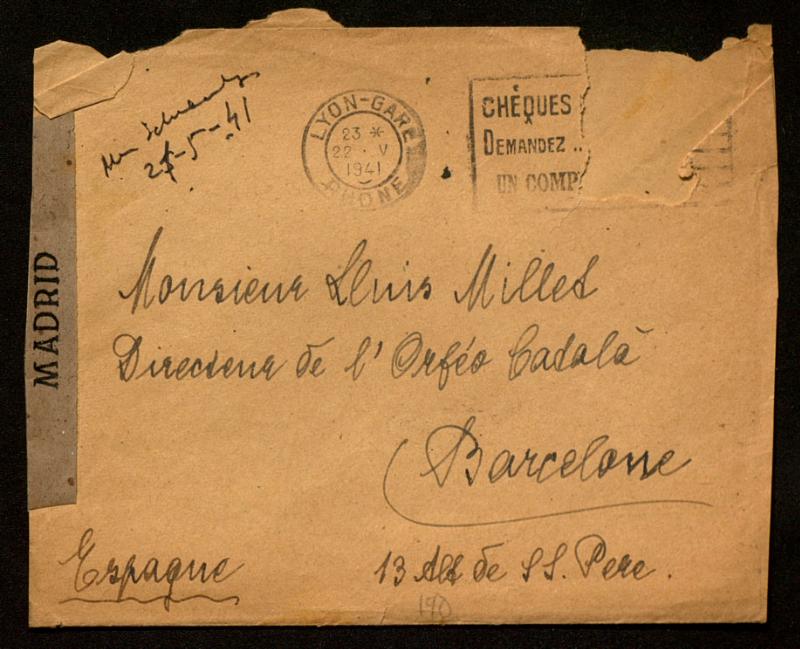 25-5-41
LYON-GARE
23 *
22 · V
1941
RHONE
CHÉQUES
DEMANDEZ ..
UN COMP
MADRID
Monsieur Lluis Millet
Directeur de l' Orféo Català
Barcelone
Espagne
13 Alt de SS. Pere.
190